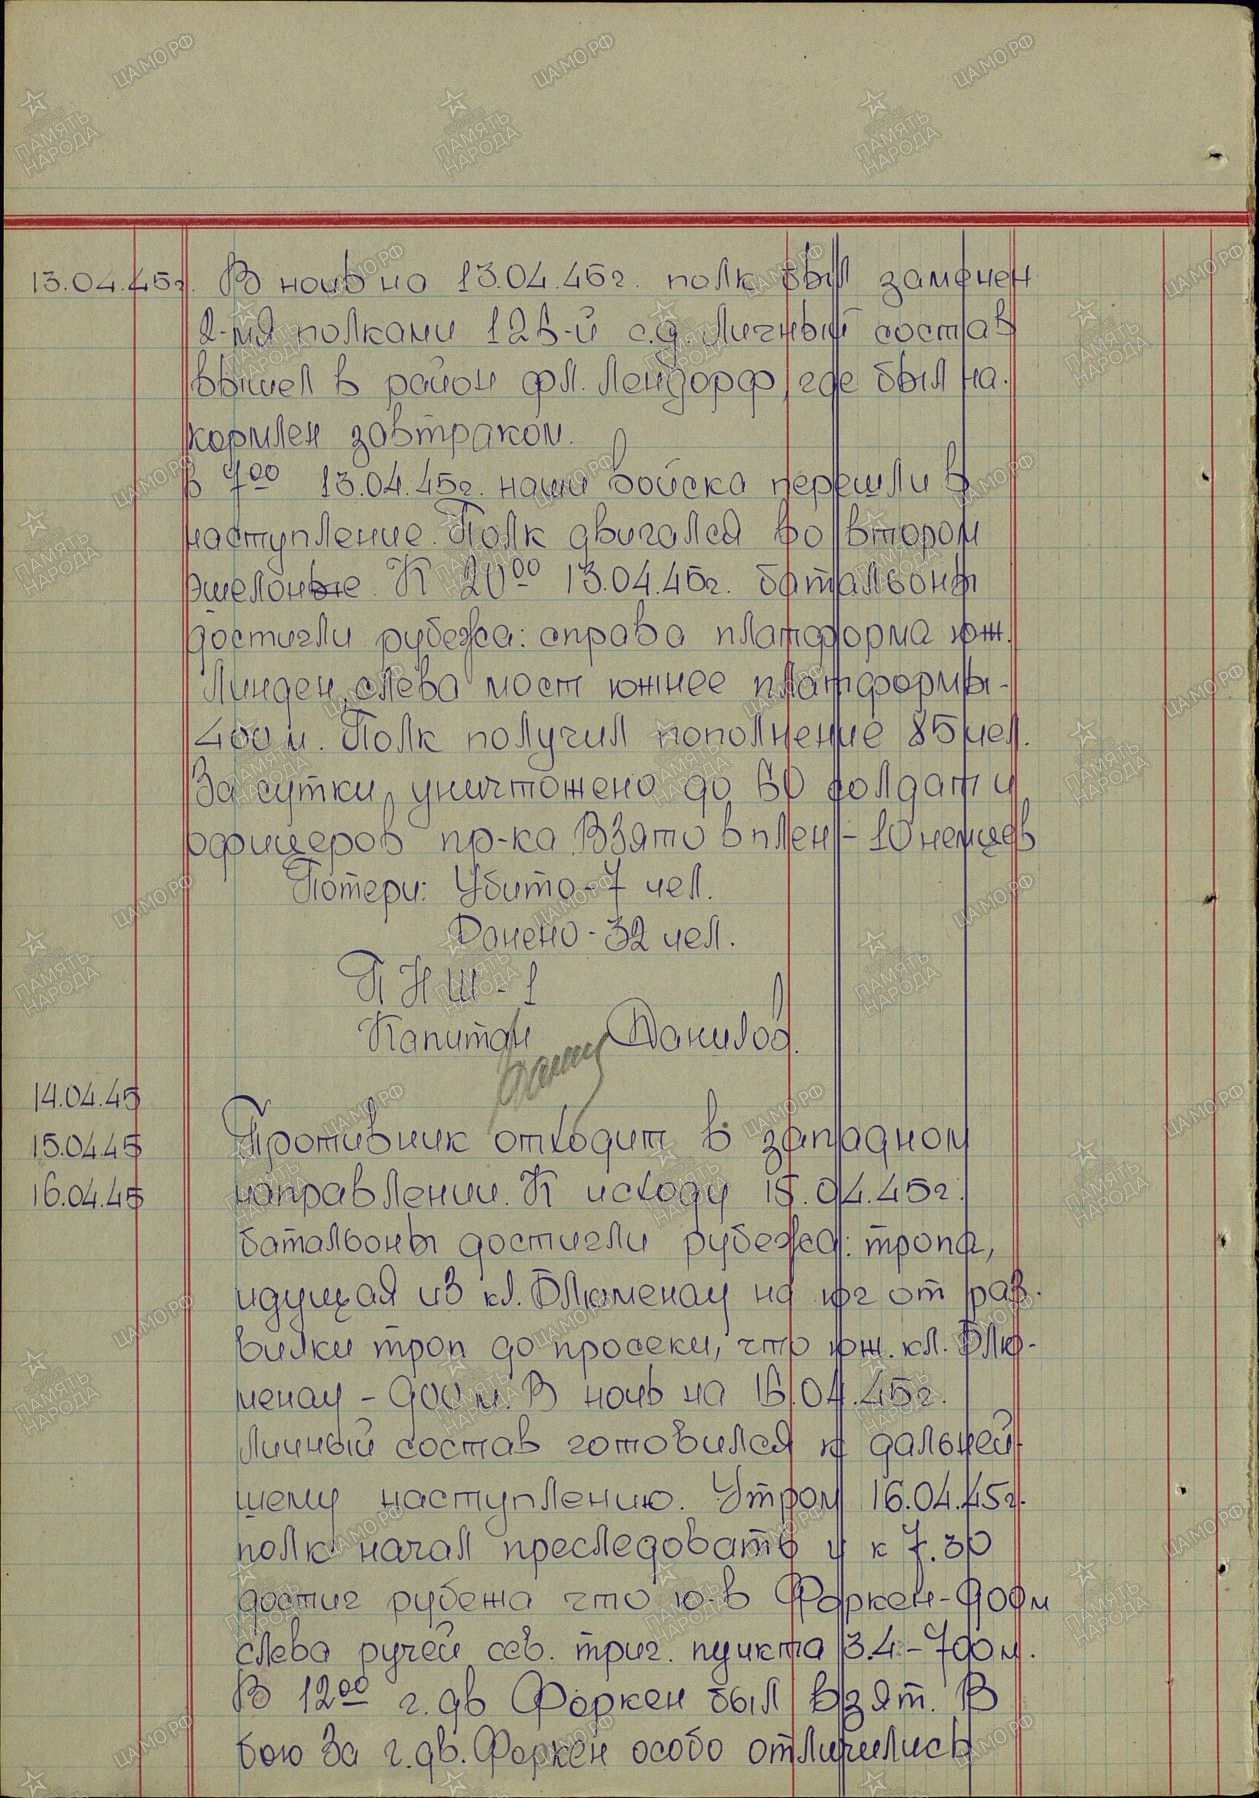 13.04.45г. В ночь на 13.04.45г. полк был заменен
2-мя полками 126-й с.д. Личный состав
вышел в район фл. Лендорф, где был на-
кормлен завтраком.
В 7 00 13.04.45г. наши войска перешли в
наступление. Полк двигался во втором
эшелоне. К 20 00 13.04.45г. батальоны
достигли рубежа: справа платформа юж.
Линден, слева мост южнее платформы-
400 м. Полк получил пополнение 85 чел.
За сутки уничтожено до 60 солдат и
офицеров пр-ка. Взято в плен - 10 немцев
Потери: Убито - 7 чел.
Ранено - 32 чел.
ПНШ - 1
Капитан Данилов.
14.04.45
15.04.45 Противник отходит в западном
16.04.45 направлении. К исходу 15.04.45г.
батальоны достигли рубежа: тропа,
идущая из кл. Блюменау на юг от раз-
вилки троп до просеки, что юж. кл. Блю-
менау - 900 м. В ночь на 16.04.45г.
личный состав готовился к дальней-
шему наступлению. Утром 16.04.45г.
полк начал преследовать и к 7.30
достиг рубежа что ю-в Форкен - 900 м
слева ручей сев. триг. пункта 3.4 - 700 м.
В 12 00 г. дв Форкен был взят. В
бою за г. дв. Форкен особо отличились